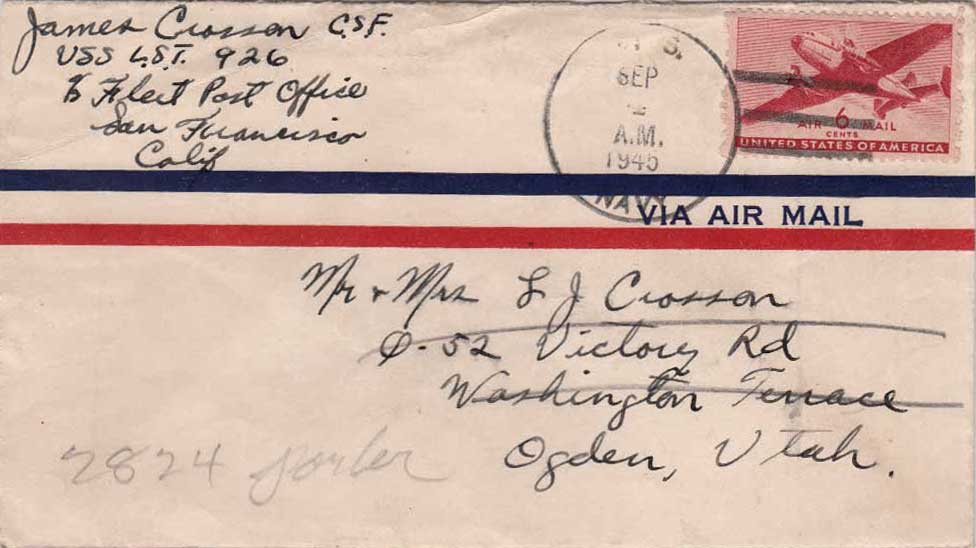 James Crosson C.S.F.
USS L.S.T. 926
℅ Fleet Post Office
San Francisco
Calif
U. S.
SEP
2
A.M.
1945
NAVY
AIR 6 MAIL
CENTS
UNITED STATES OF AMERICA
VIA AIR MAIL
Mr & Mrs L J Crosson
O-52 Victory Rd
Washington Terrace
Ogden, Utah.
2824 Porter